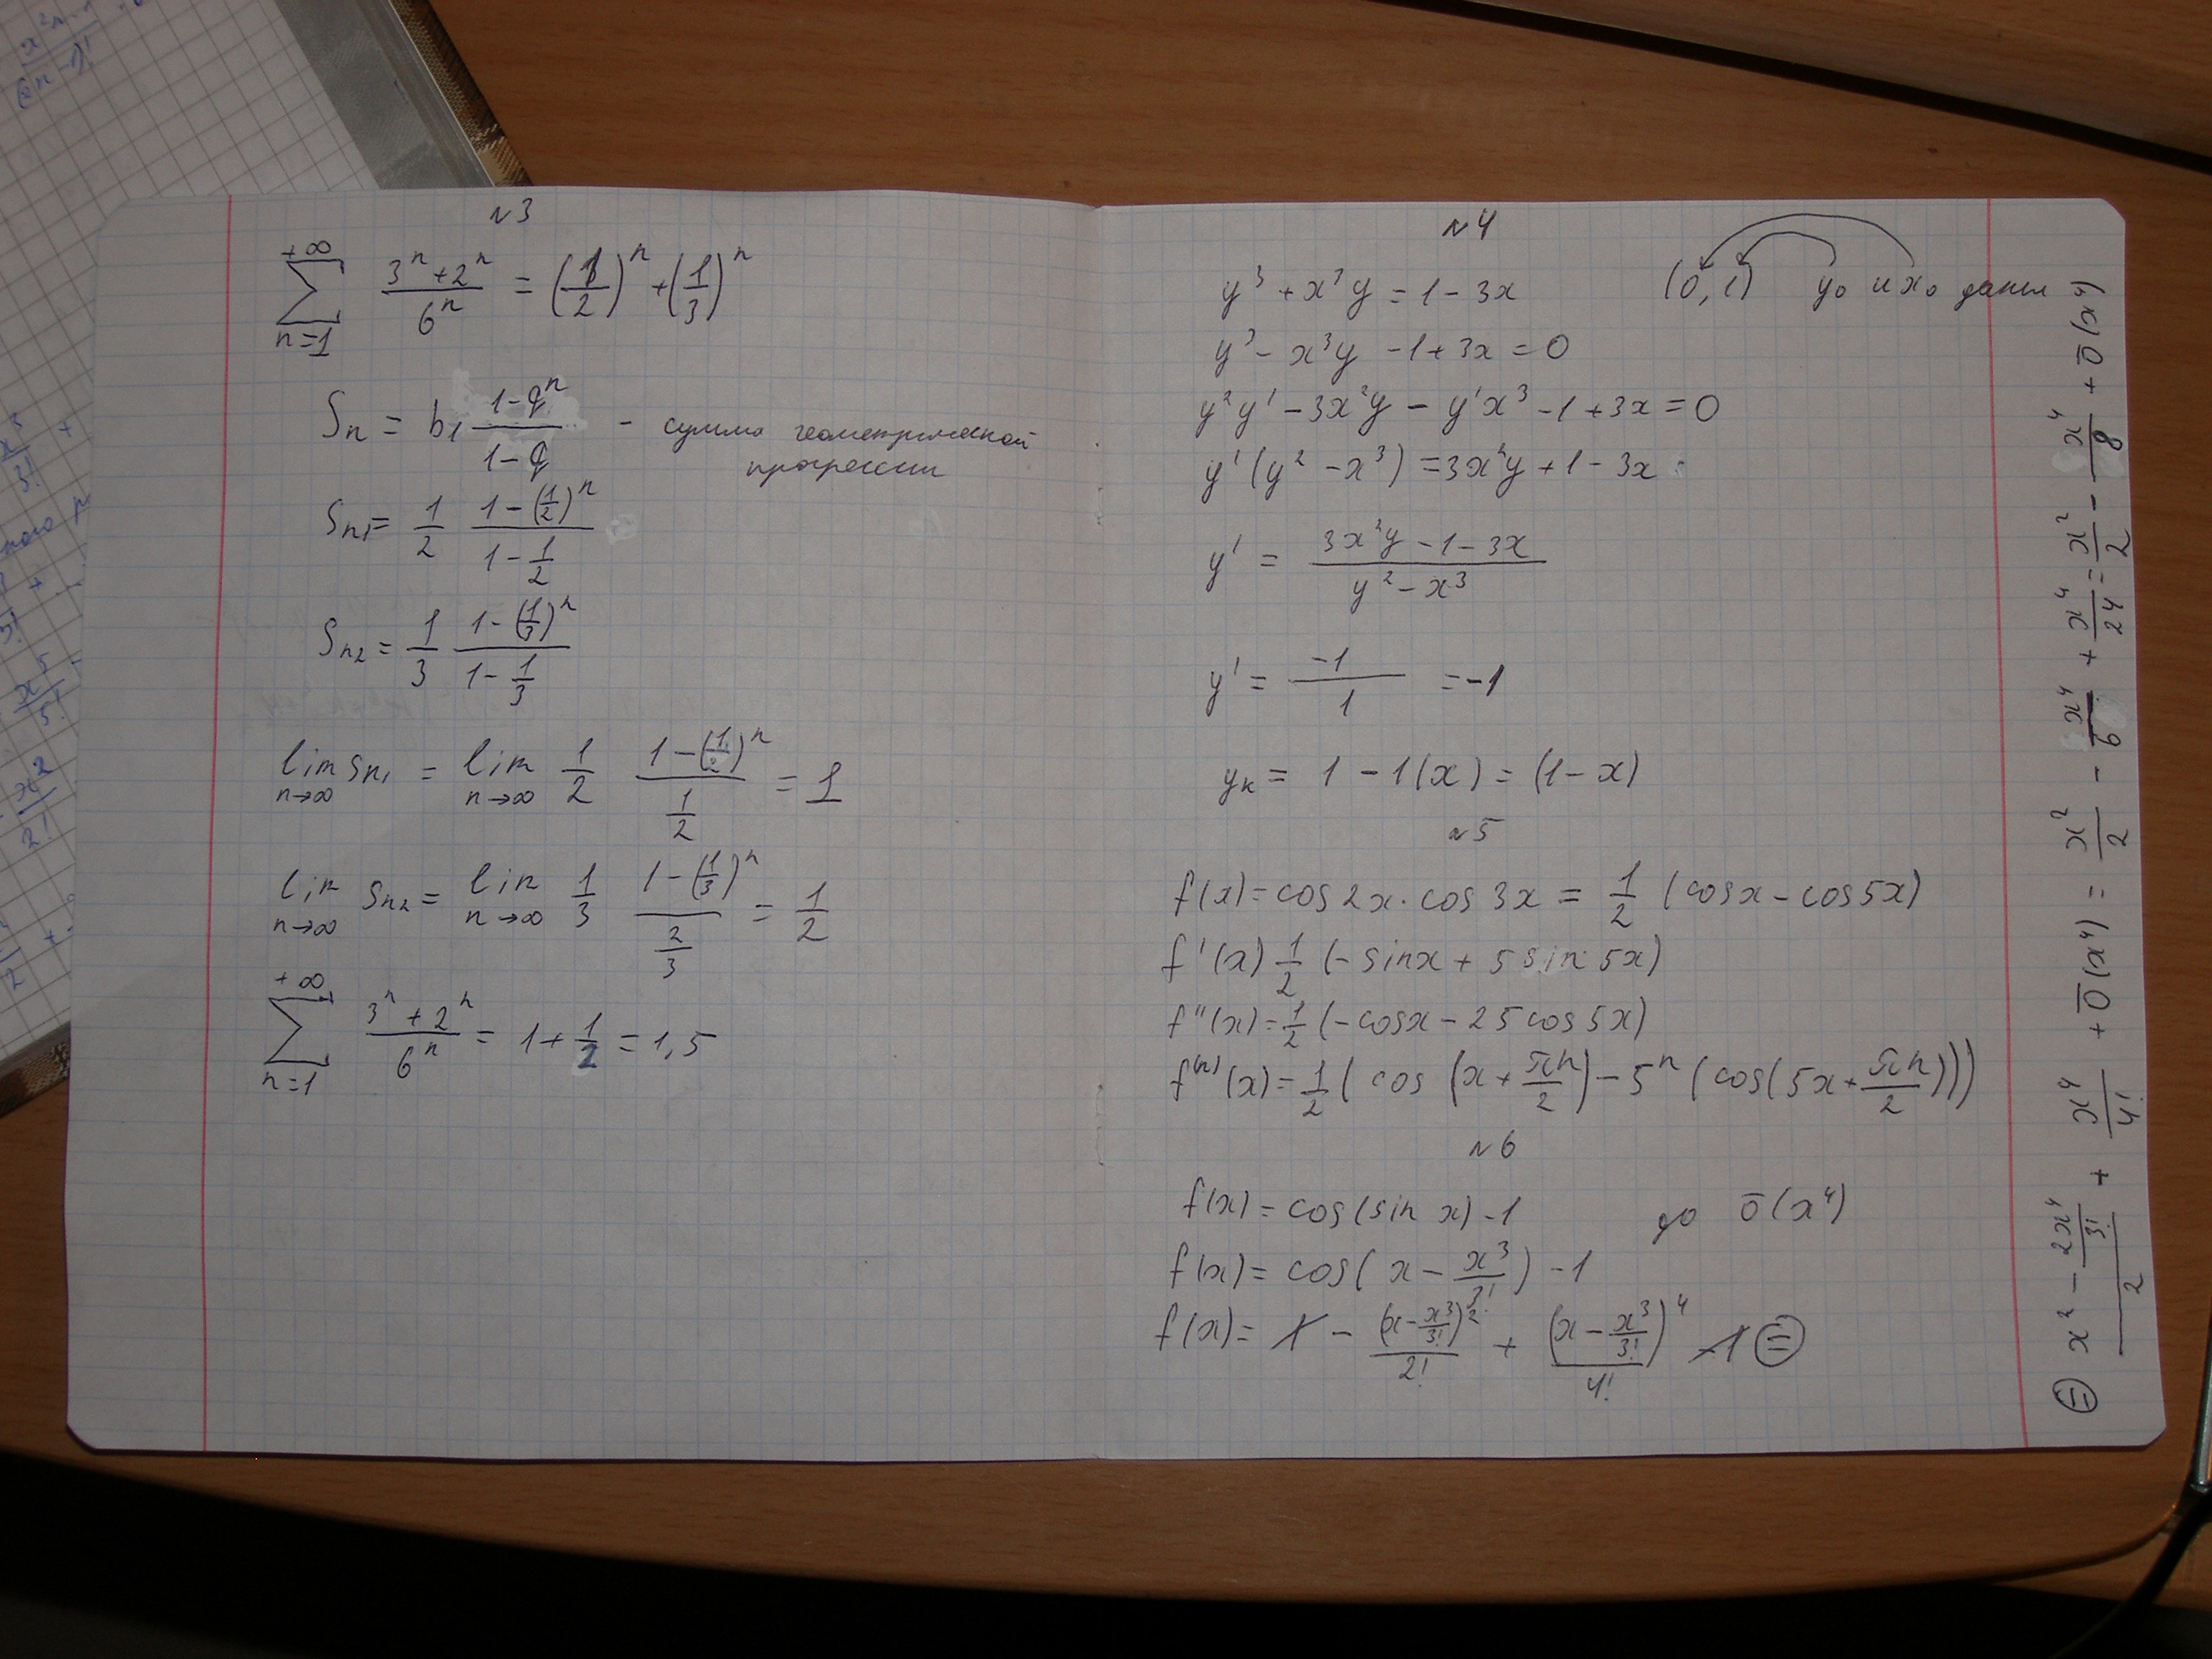 №3
+∞ ∑ n=1 (3ⁿ+2ⁿ)/6ⁿ = (1/2)ⁿ + (1/3)ⁿ
Sn = b₁ (1-qⁿ)/(1-q) - сумма геометрической
прогрессии
Sn₁ = 1/2 (1-(1/2)ⁿ)/(1-1/2)
Sn₂ = 1/3 (1-(1/3)ⁿ)/(1-1/3)
lim n→∞ Sn₁ = lim n→∞ 1/2 (1-(1/2)ⁿ)/(1/2) = 1
lim n→∞ Sn₂ = lim n→∞ 1/3 (1-(1/3)ⁿ)/(2/3) = 1/2
+∞ ∑ n=1 (3ⁿ+2ⁿ)/6ⁿ = 1+1/2 = 1,5
№4
y³ + x³y = 1 - 3x (0, 1) y₀ и x₀ даны
y³ - x³y - 1 + 3x = 0
y²y' - 3x²y - y'x³ - 1 + 3x = 0
y'(y² - x³) = 3x²y + 1 - 3x
y' = (3x²y - 1 - 3x)/(y² - x³)
y' = -1/1 = -1
yк = 1 - 1(x) = (1 - x)
№5
f(x) = cos 2x · cos 3x = 1/2 (cosx - cos5x)
f'(x) 1/2 (-sinx + 5 sin 5x)
f''(x) = 1/2 (-cosx - 25 cos 5x)
f⁽ⁿ⁾(x) = 1/2 ( cos (x + πn/2) - 5ⁿ (cos(5x + πn/2)))
№6
f(x) = cos(sin x) - 1 до o̅(x⁴)
f(x) = cos( x - x³/3! ) - 1
f(x) = 1 - (x - x³/3!)²/2! + (x - x³/3!)⁴/4! - 1 ⊜
⊜ (x² - 2x⁴/3!)/2 + x⁴/4! + o̅(x⁴) = x²/2 - x⁴/6 + x⁴/24 = x²/2 - x⁴/8 + o̅(x⁴)